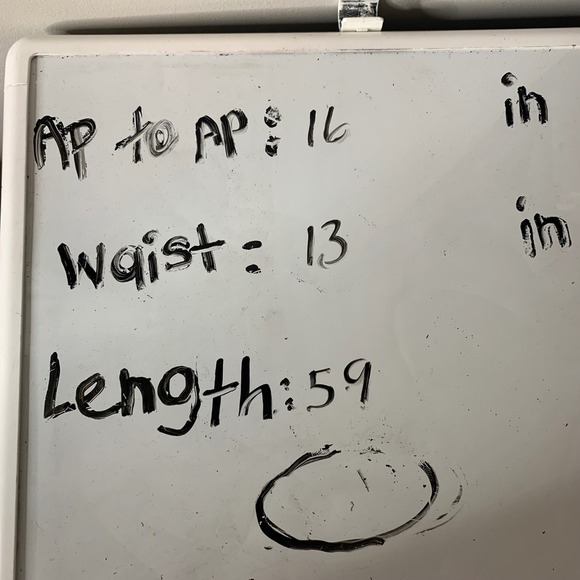 AP to AP: 16 in
Waist: 13 in
Length: 59